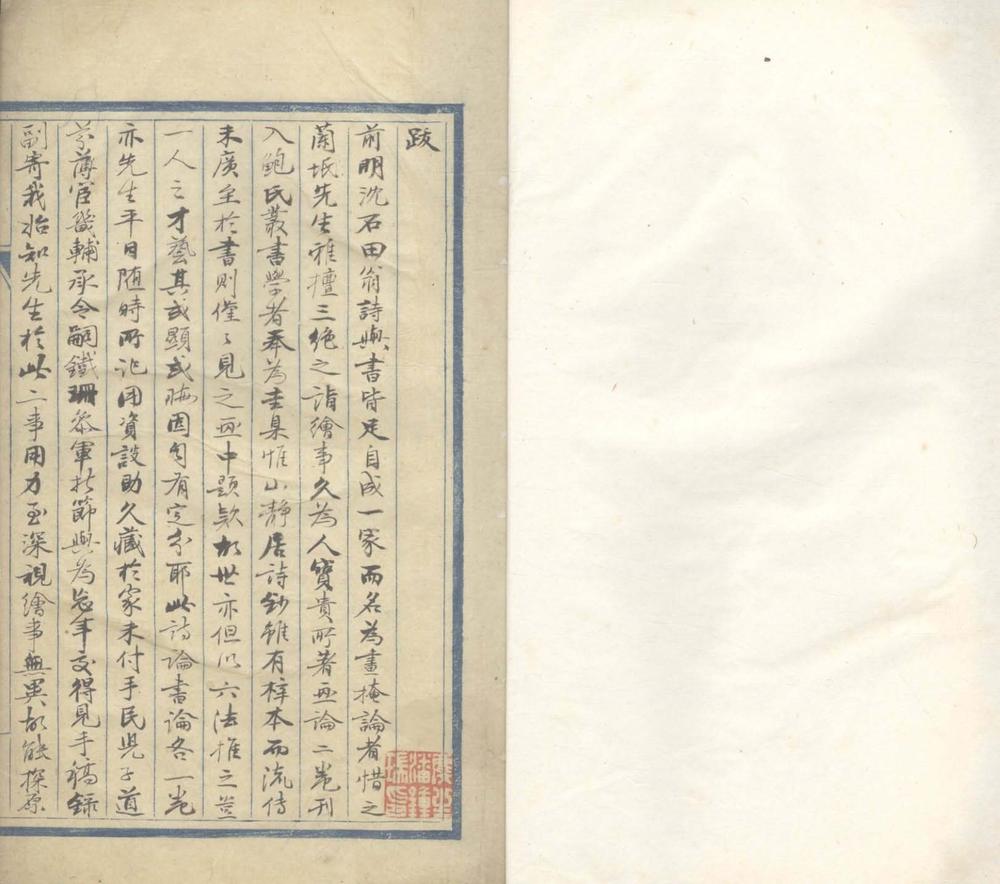 跋
前明沈石田翁詩與書皆足自成一家而名為畫掩論者惜之
蘭坻先生雅擅三絕之詣繪事久為人寶貴所著画論二卷刊
入鮑氏叢書學者奉為圭臬惟山靜居詩鈔雖有梓本而流傳
未廣至於書則僅〻見之画中題欵故世亦但以六法推之豈
一人之才藝其或顯或晦固自有定分耶此詩論書論各一卷
亦先生平日随時所記用資談助久藏於家未付手民兒子道
芬薄宦畿輔承令嗣鐵珊叅軍折節與為忘年交得見手稿錄
副寄我始知先生於此二事用力至深視繪事無異故能探原